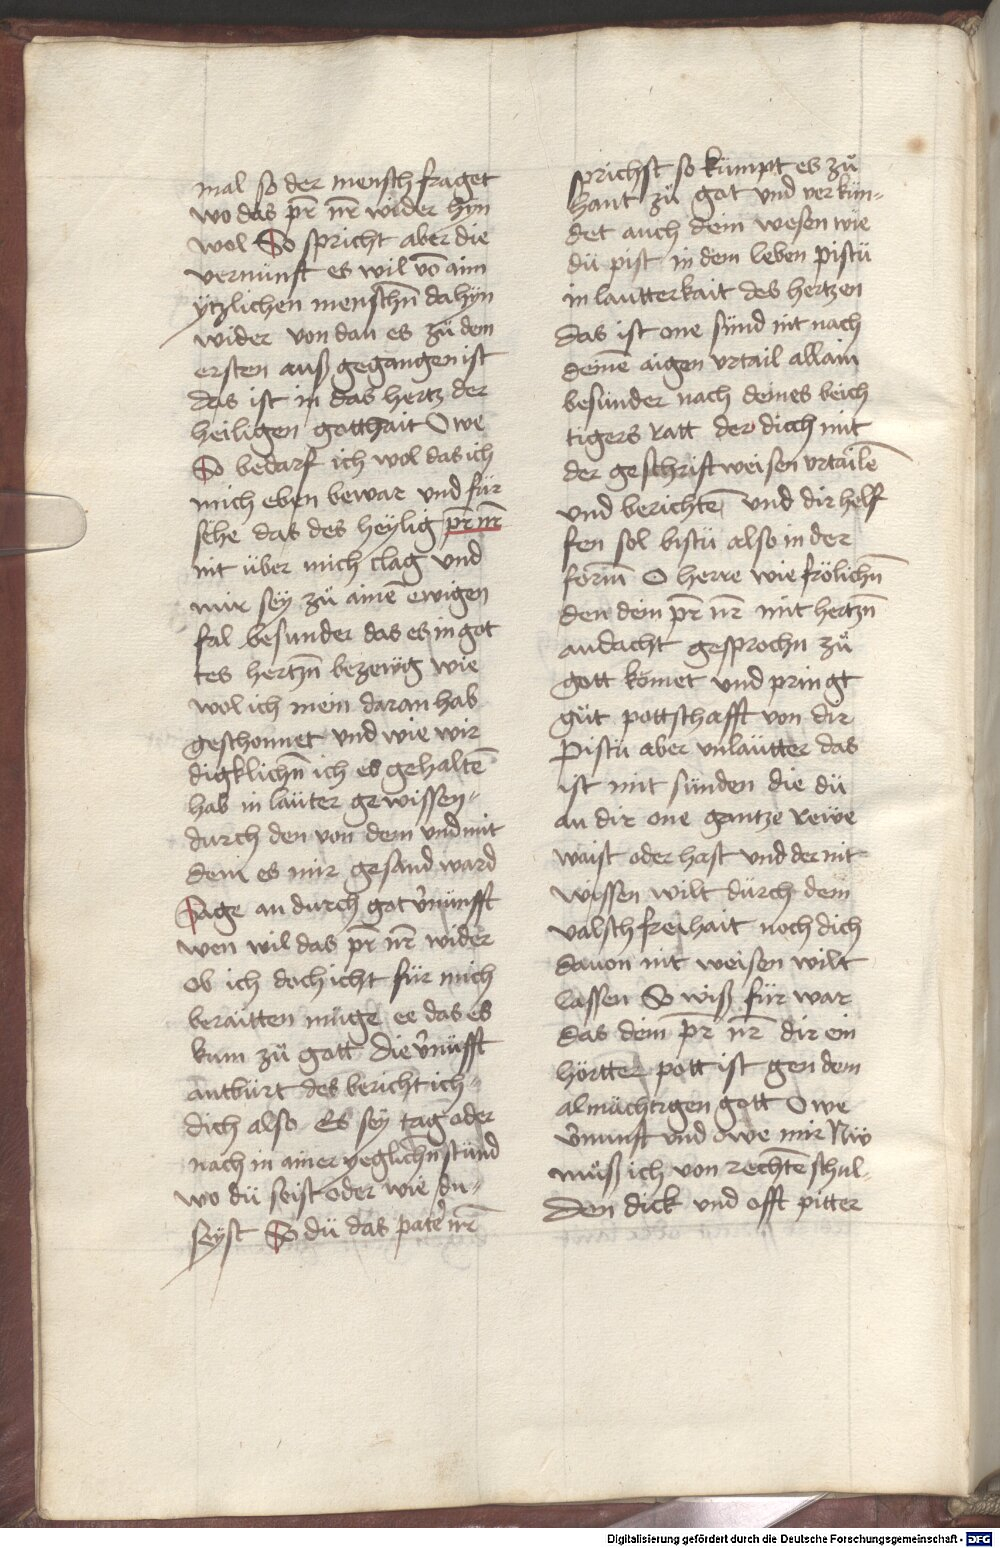 mal so der mensch fraget
wo das pr̄ nr̄ wider hyn
wol So spricht aber die
vernunft es wil vō aim
ytzlichen menschn̄ dahyn
wider von dan es zü dem
ersten auß gegangen ist
das ist in das hertz der
heiligen gotthait O we
So bedarf ich wol das ich
mich eben bewar vnd für
sehe das des heylig pr̄ nr̄
nit über mich clag vnd
mir sey zü ainē ewigen
fal besunder das es in got
tes hertzn̄ bezewg wie
wol ich mein daran hab
geschonnet vnd wie wir
digklichn̄ ich es gehaltē
hab in lauter gewissen
durch den von dem vnd mit
dem es mir gesand ward
Sage an durch got v̉nünfft
wen wil das pr̄ nr̄ wider
ob ich doch icht für mich
beraitten müge ee das es
kum zü gott die v̉nüfft
antbürt des bericht ich
dich also Es sey tag oder
nach in ainer yeglichn̄ stünd
wo dü seist oder wie du
seyst So dü das pater̉ nr̄
sprichst so kümpt es zů
hant zů got vnd verkün-
det auch dein wesen wie
dü pist in dem leben pistü
in lautterkait des hertzen
das ist one sünd nit nach
deinē aigen vrtail allain
besunder nach deines beich
tigers ratt der dich mit
der geschrift weisen vrtailē
vnd berichtē vnd dir helf
fen sol bistü also in der
form O herre wie frölichn̄
den dein pr̄ nr̄ mit hertzn̄
andacht gesprochn zů
gott kömet vnd pringt
güt pottschafft von dir
Pistü aber vnlautter das
ist mit sünden die dü
an dir one gantze reẅe
waist oder hast vnd der nit
wissen wilt dürch dein
valsch freihait noch dich
dauon nit weisen wilt
lassen So wiß für war
das dein pr̄ nr̄ dir ein
hörtter pott ist gen dem
almächtigen gott O we
v̉nunft vnd owe mir Nü
müß ich von rechtē schul-
den dick vnd offt pitter
Digitalisierung gefördert durch die Deutsche Forschungsgemeinschaft - DFG